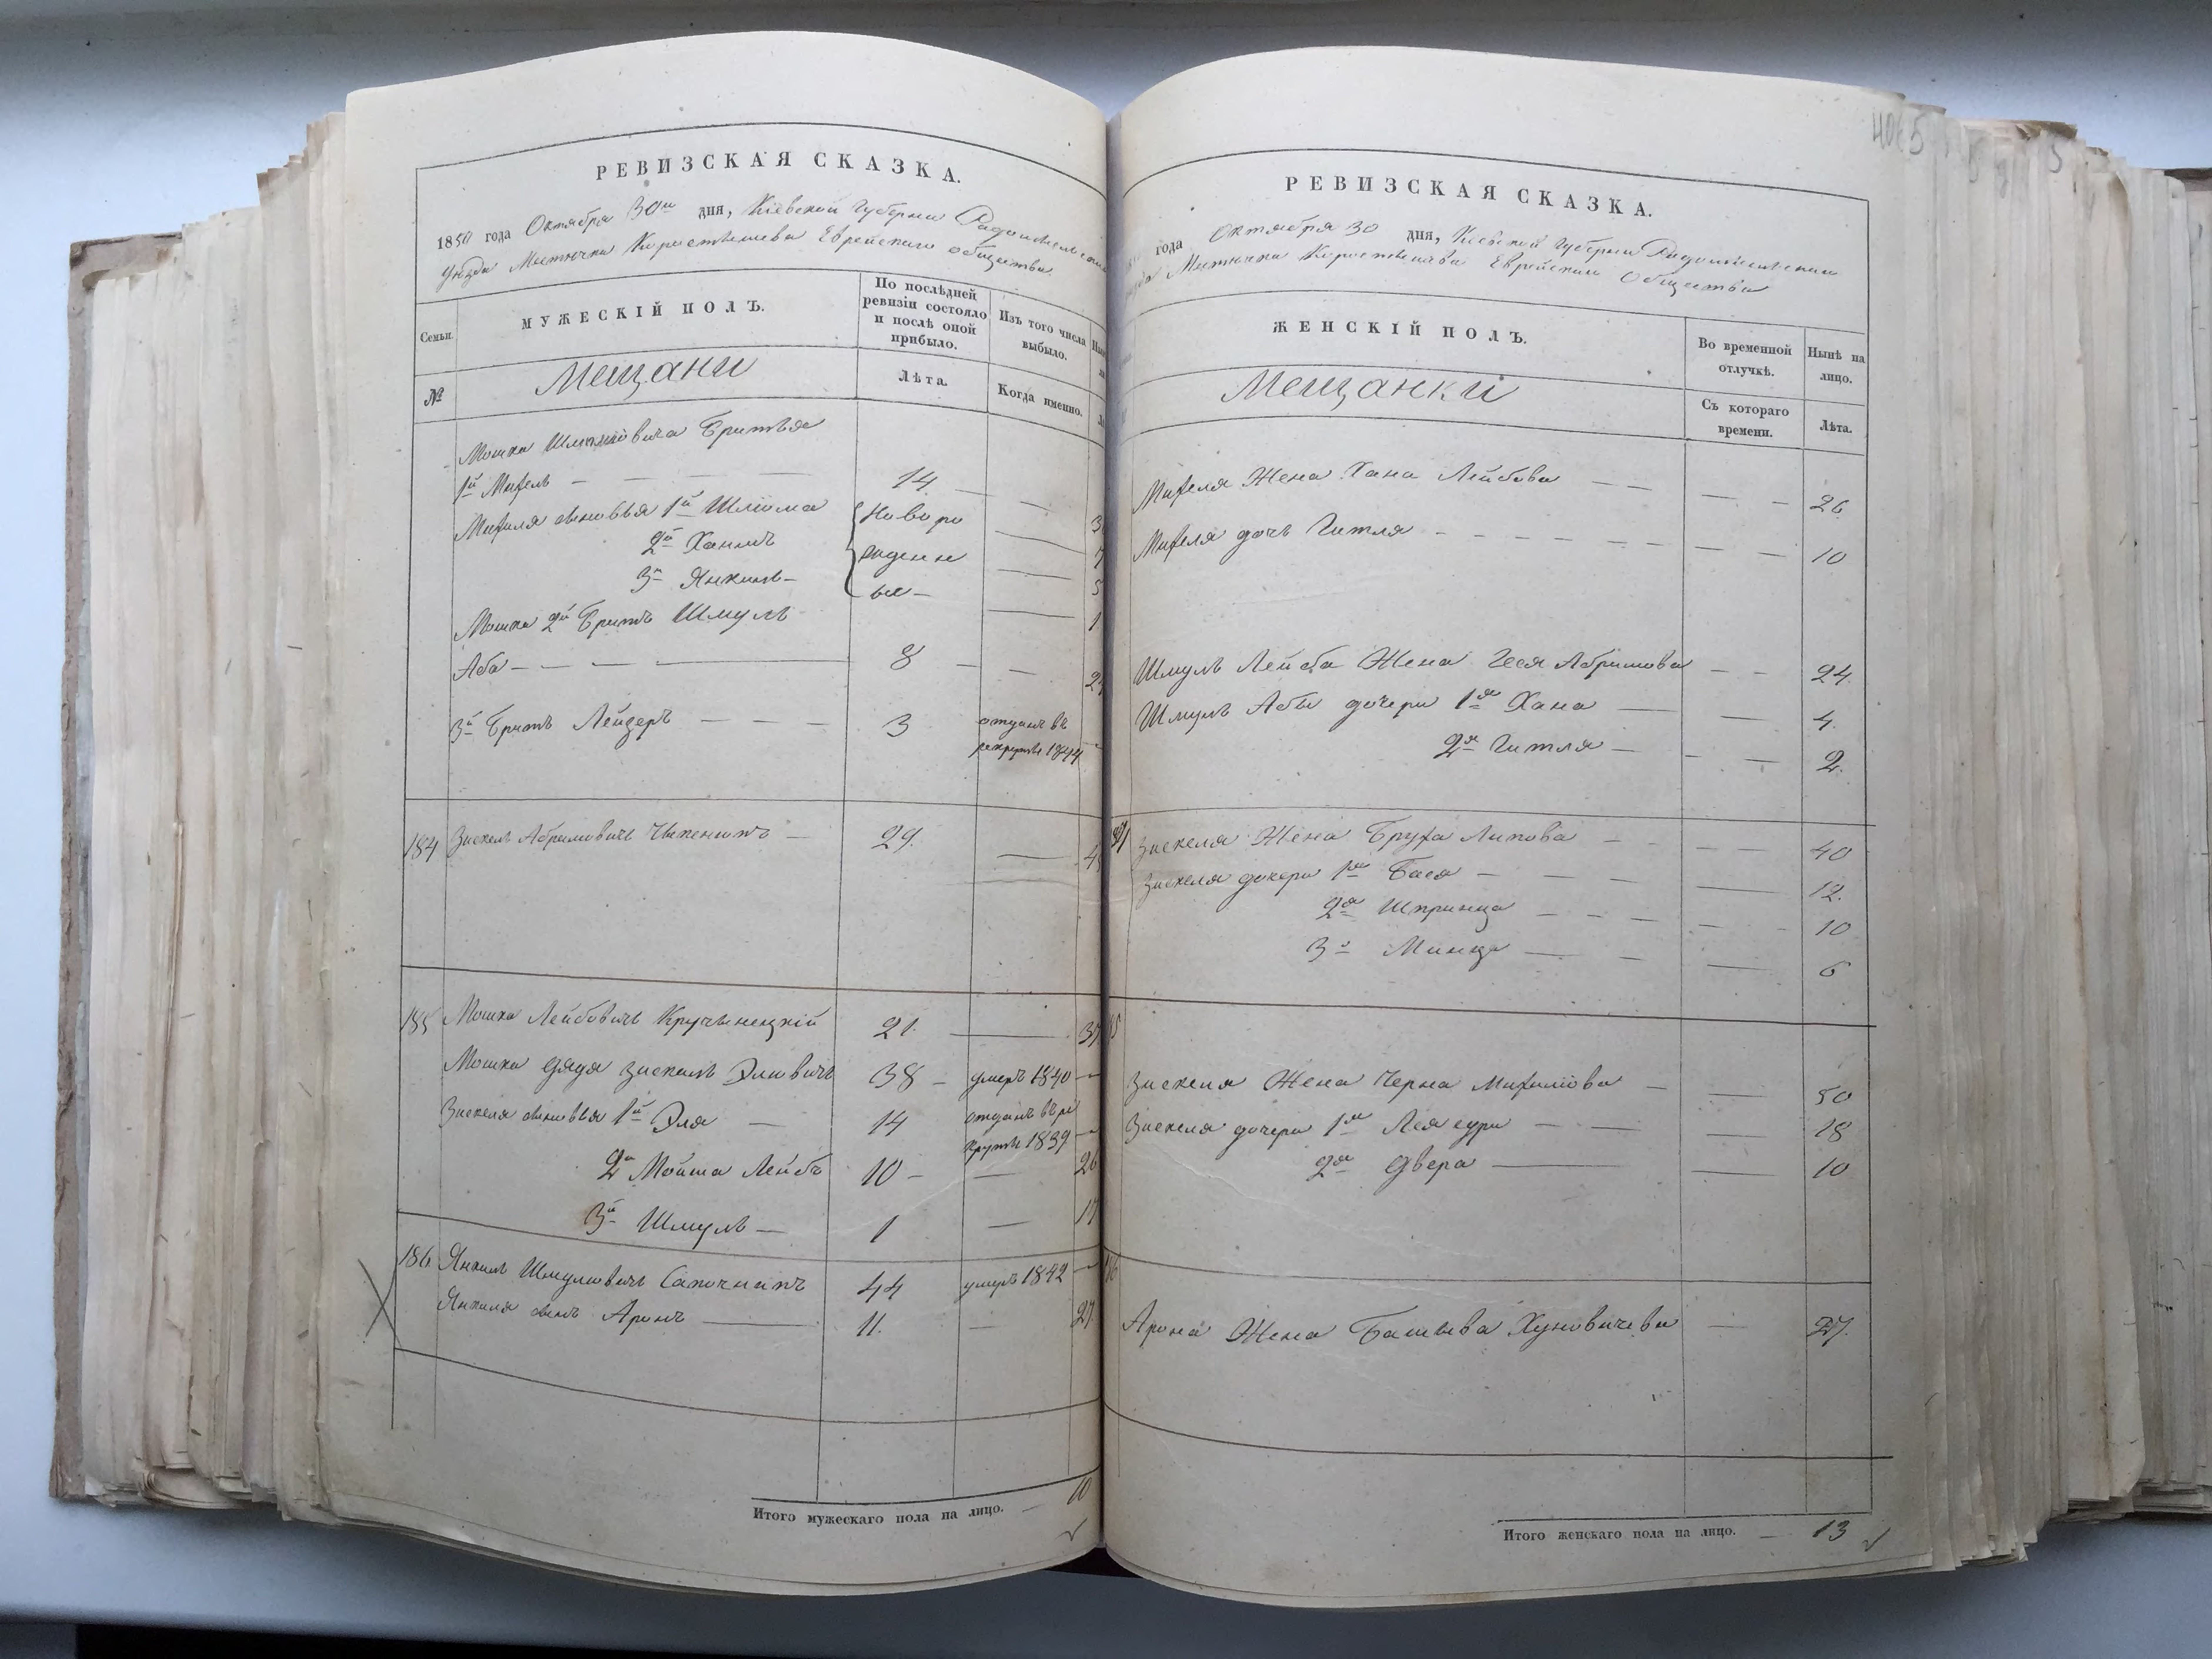 РЕВИЗСКАЯ СКАЗКА.
1850 года Октября 30го дня, Кіевской Губерніи
уезда Местечка Коростышева Еврейского общества
Семьи.
МУЖЕСКІЙ ПОЛЪ.
По послѣдней ревизіи состояло и послѣ оной прибыло.
Изъ того числа выбыло.
№
Мещани
Лѣта.
Когда именно.
Мошка Братья
1й Михель 14
Михеля сыновья 1й Шліома Новоро
2й Хаимъ жденн
3й Янкель ые
Мошка 2й Братъ Шмуль 1
Аба 8
3й Братъ Лейзеръ 3 отданъ въ
рекруты 1844
184 Зискель Абрамовичъ 29.
185 Мошко Лейбовичъ 21.
Мошка дядя Зискель Эліовичъ 38 умеръ 1840
Зискеля сыновья 1й Эля 14 отданъ въ ре
круты 1839
2й Мойша Лейбъ 10 26
3й Шмуль 1
186 Янкель Шмулиовичъ Сапожникъ 44 умеръ 1842
Янкеля сынъ Аронъ 11. 27.
Итого мужескаго пола на лицо. 10
РЕВИЗСКАЯ СКАЗКА.
года Октября 30 дня, Кіевской Губерніи Радомысльскаго
Местечка Коростышева Еврейского Общества
ЖЕНСКІЙ ПОЛЪ.
Во временной отлучкѣ.
Нынѣ на лицо.
Мещанки
Съ котораго времени.
Лѣта.
Михеля Жена Хана Лейбова 26
Михеля дочь Гитля 10
Шмуль Жена Абрамова 24.
Шмуль Абы дочери 1я Хана 4.
2я Гитля 2.
Зискеля Жена Бруха Липова 40
Зискеля дочери 1я Бася 12.
2я Шпринца 10
3я 6
Зискеля Жена Черна Михеліова 50
Зискеля дочери 1я 18
2я Двера 10
186
Арона Жена Башева Хуновичева 27.
Итого женскаго пола на лицо. 13